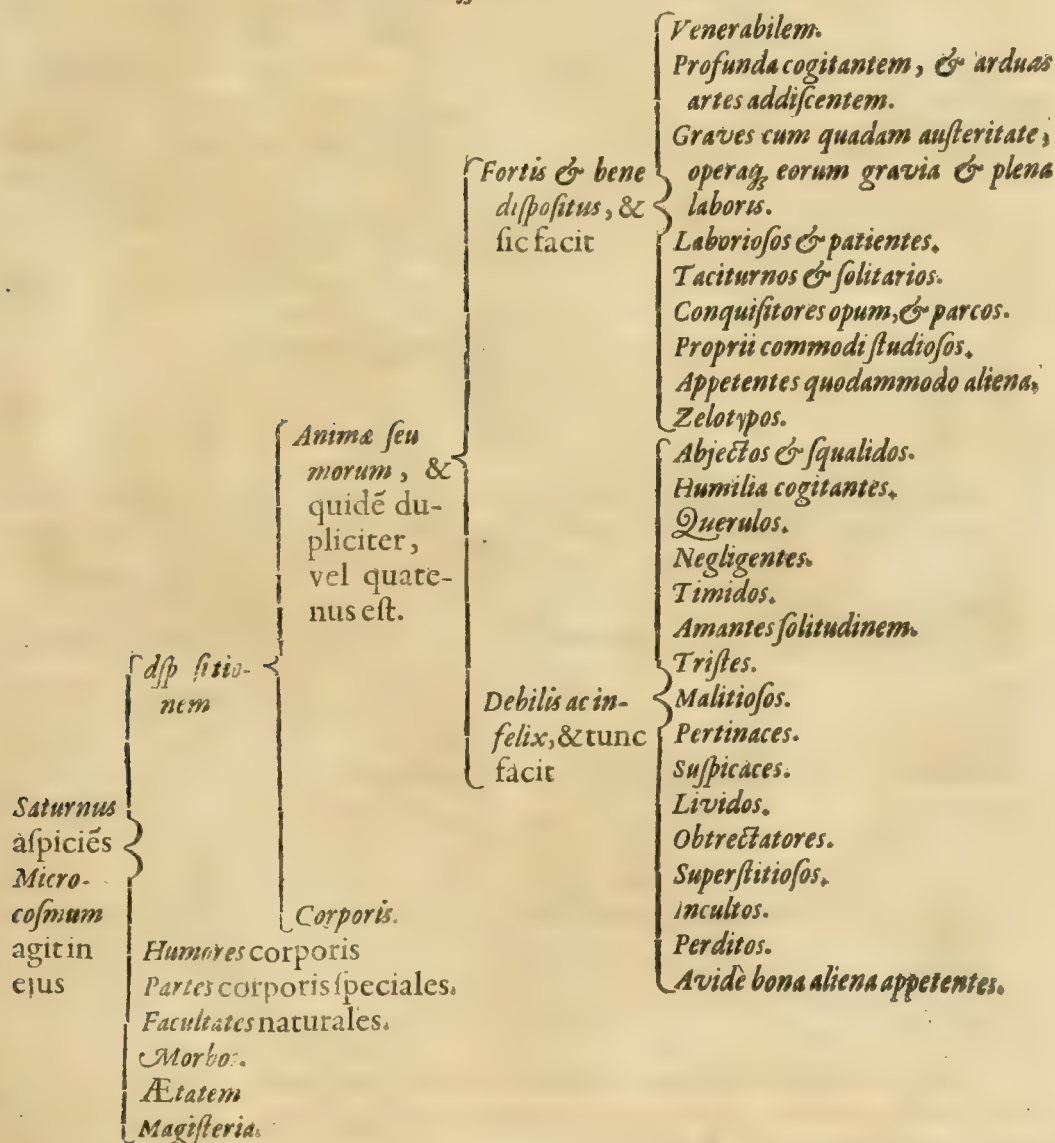 Saturnus
aſpiciẽs
Micro-
coſmum
agit in
ejus
diſp ſitio-
nem
Humores corporis
Partes corporis ſpeciales.
Facultates naturales.
Morbos.
Ætatem
Magiſteria.
Animæ ſeu
morum, &
quidẽ du-
pliciter,
vel quate-
nus eſt.
Corporis.
Fortis & bene
diſpoſitus, &
ſic facit
Venerabilem.
Profunda cogitantem, & arduas
artes addiſcentem.
Graves cum quadam auſteritate,
operaq; eorum gravia & plena
laboris.
Laborioſos & patientes.
Taciturnos & ſolitarios.
Conquiſitores opum, & parcos.
Proprii commodi ſtudioſos.
Appetentes quodammodo aliena.
Zelotypos.
Debilis ac in-
felix, & tunc
facit
Abjectos & ſqualidos.
Humilia cogitantes.
Querulos.
Negligentes.
Timidos.
Amantes ſolitudinem.
Triſtes.
Malitioſos.
Pertinaces.
Suſpicaces.
Lividos.
Obtrectatores.
Superſtitioſos.
Incultos.
Perditos.
Avidè bona aliena appetentes.